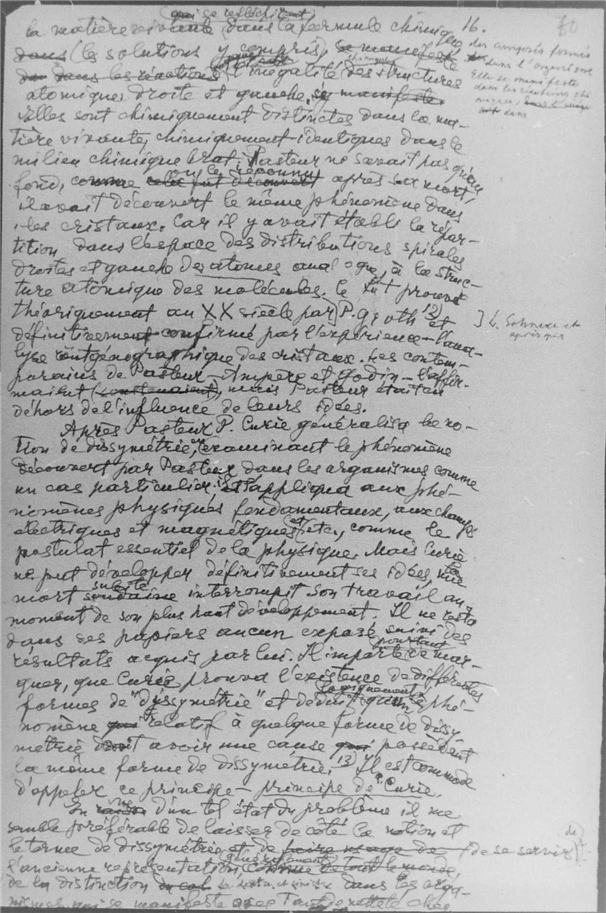 (qui se reflechirent) 16.
la matière vivante dans la formule chimique
dans (les solutions y compris) se manifeste des composés formés
dans les réactions l'inégalité des structures dans l'organisme
atomiques droite et gauche se manifeste Elle se manifeste
dans les réactions
elles sont chimiquement distinctes dans la ma-
tière vivante, chimiquement identiques dans le
milieu chimique brut. Pasteur ne savait pas qu'au
fond, comme on le reconnut après sa mort,
il avait découvert le même phénomène dans
les cristaux. Car il y avait établi la répar-
tition dans l'espace des distributions spirales
droites et gauches des atomes, à la struc-
ture atomique des molécules. Le fut prouvé
théoriquement au XX siècle par P. Groth 12) et
définitivement confirmé par l'expérience – l'ana-
lyse röntgenographique des cristaux. Les contem-
porains de Pasteur – Ampère et Godin – l'affir-
maient (soutenaient), mais Pasteur était en
dehors de l'influence de leurs idées.
Après Pasteur P. Curie généralisa la no-
tion de dissymétrie, examinant le phénomène
découvert par Pasteur dans les organismes comme
un cas particulier. Il l'appliqua aux phé-
nomènes physiques fondamentaux, aux champs
électriques et magnétiques etc, comme le
postulat essentiel de la physique. Mais Curie
ne put développer définitivement ses idées, une
mort subite soudaine interrompit son travail au
moment de son plus haut développement. Il ne resta
dans ses papiers aucun exposé suivi des
résultats acquis par lui. Il importe pourtant de mar-
quer, que Curie prouva l'existence de différentes
formes de "dissymétrie" et déduit logiquement qu'un phé-
nomène relatif à quelque forme de dissy-
métrie doit avoir une cause possédant
la même forme de dissymétrie. 13) Il est commode
d'appeler ce principe – principe de Curie.
En d'un tel état du problème il me
semble préférable de laisser de côté la notion et
le terme de dissymétrie et de faire usage de (de se servir de)
l'ancienne représentation connue de tout le monde,
de la distinction dans les orga-
nismes qui se manifeste avec tant de netteté chez